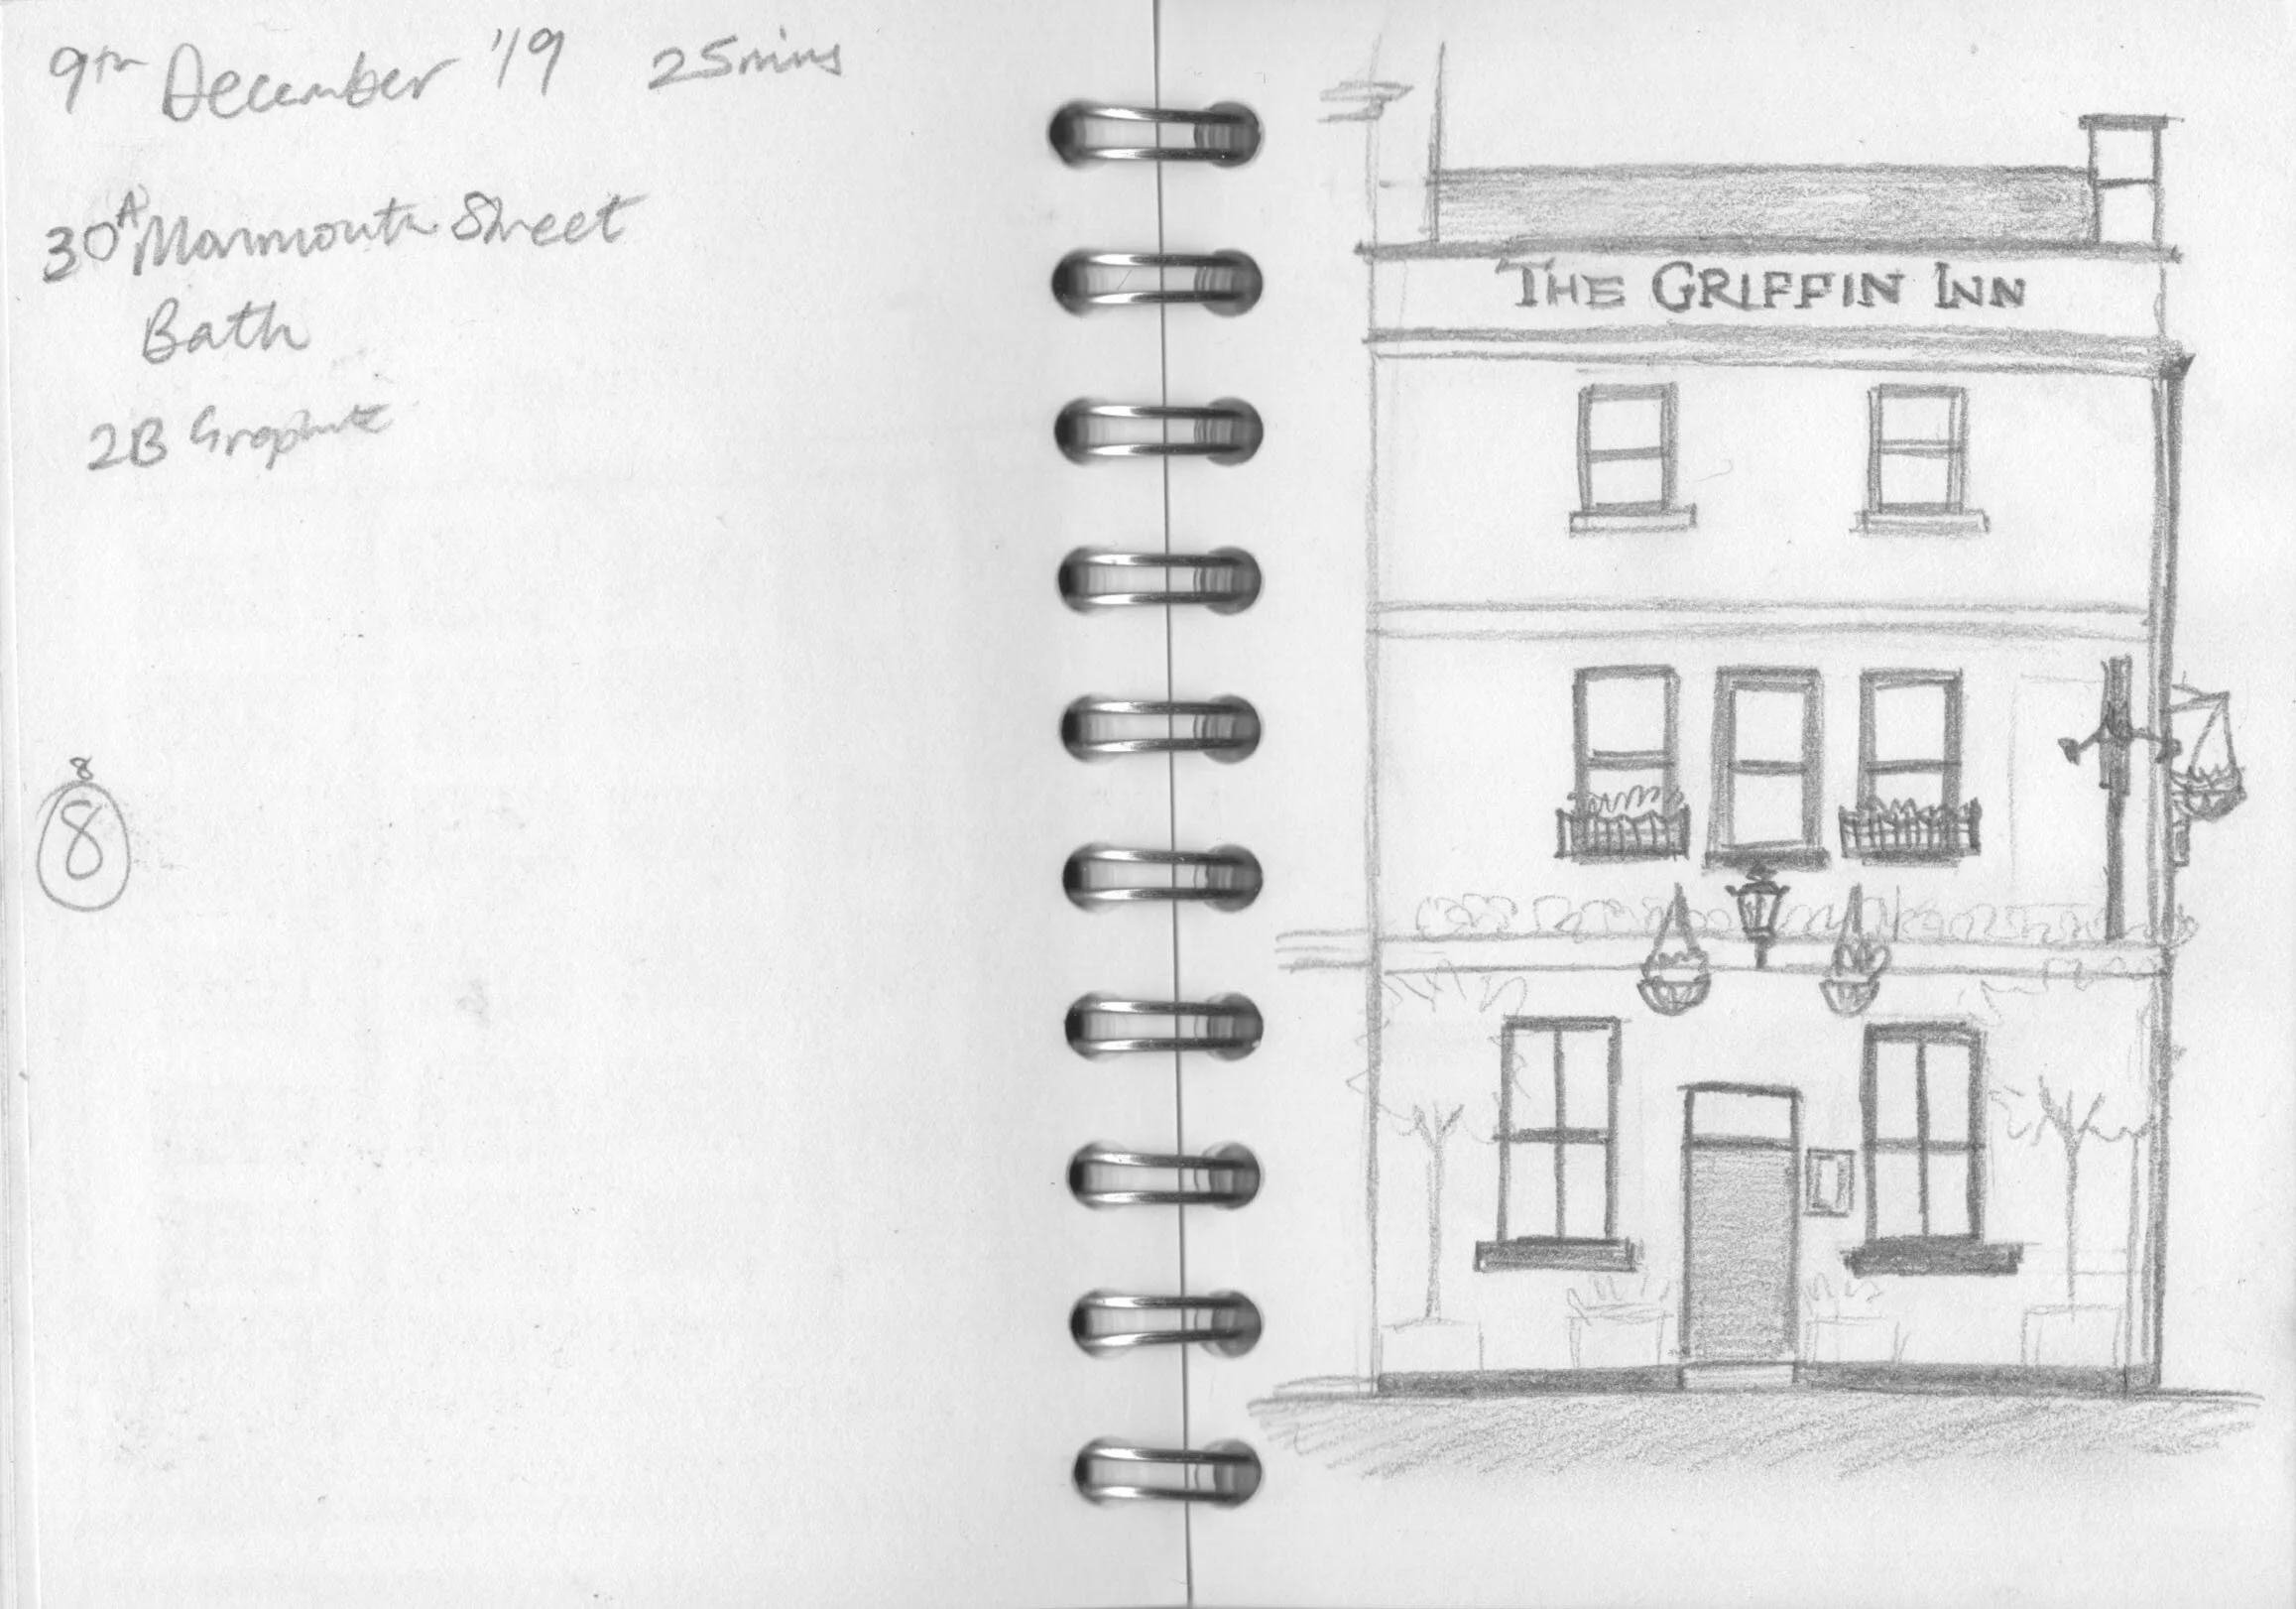 9th December '19 25mins
30A Monmouth Street
Bath
2B Graphite
8
8
THE GRIFFIN INN